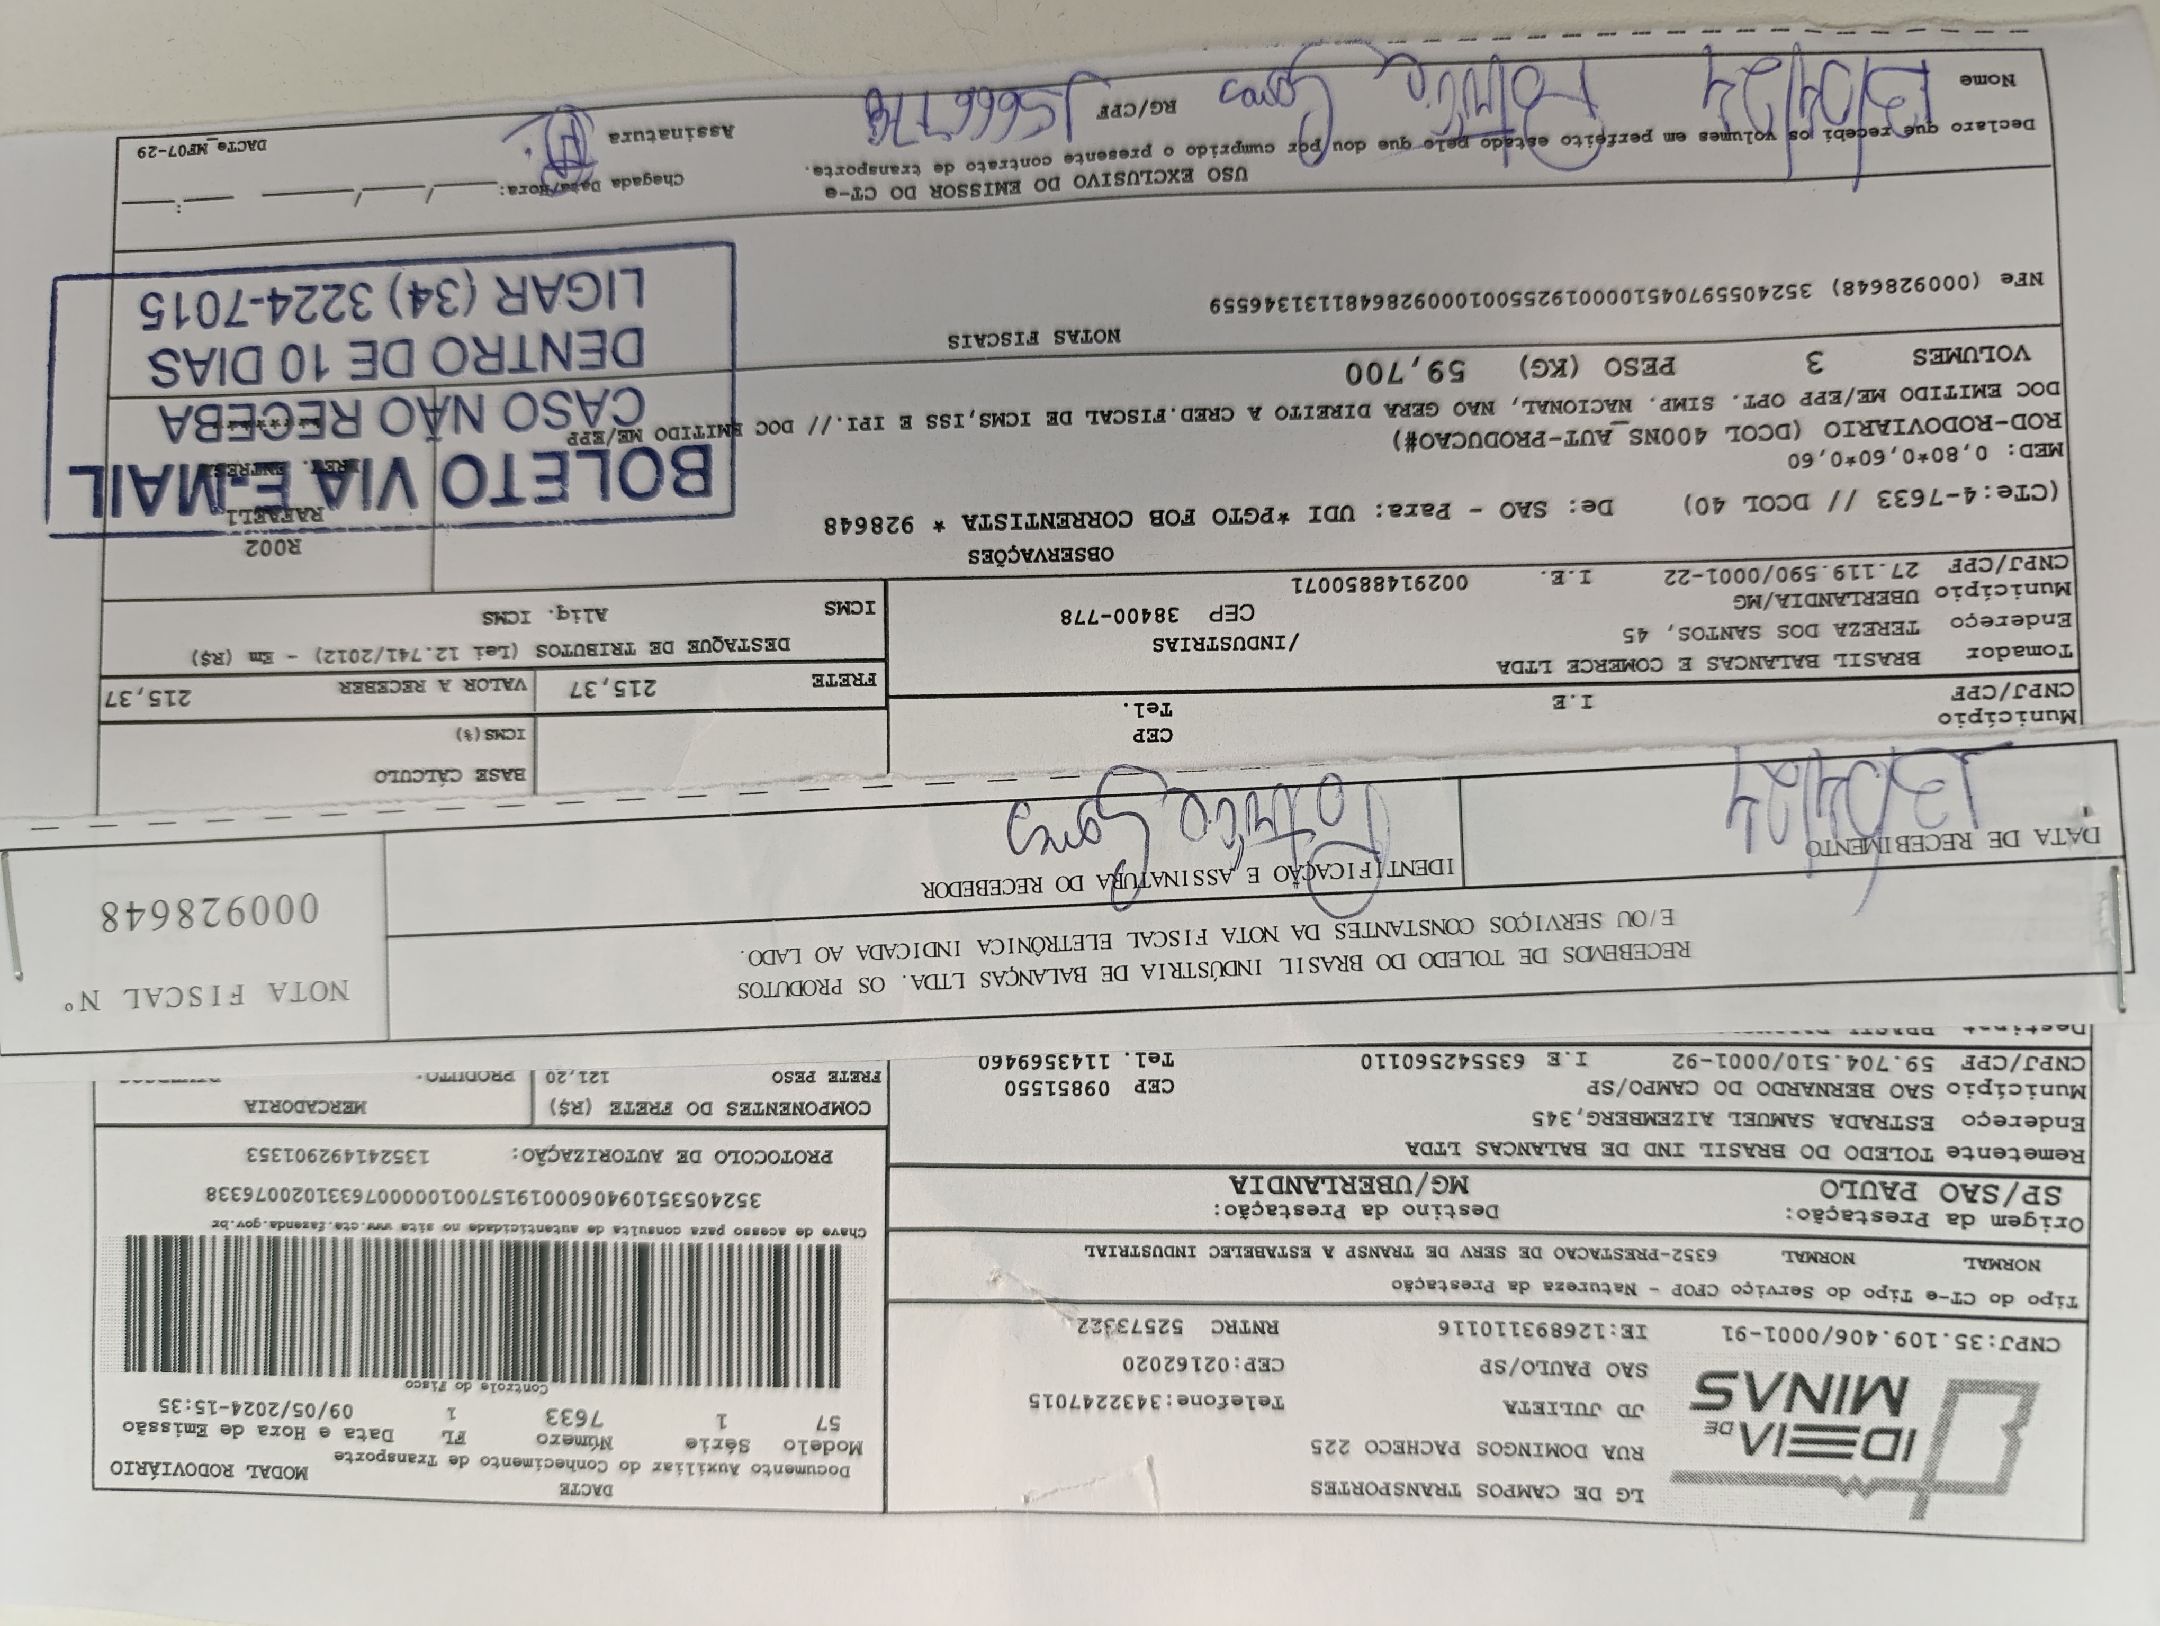 IDEIA DE MINAS
LG DE CAMPOS TRANSPORTES
RUA DOMINGOS PACHECO 225
JD JULIETA Telefone:3432247015
SAO PAULO/SP CEP:02162020
CNPJ:35.109.406/0001-91 IE:126893110116 RNTRC 52573322
DACTE
Documento Auxiliar do Conhecimento de Transporte MODAL RODOVIÁRIO
Modelo Série Número FL Data e Hora de Emissão
57 1 7633 1 09/05/2024-15:35
Controle do Fisco
Chave de acesso para consulta de autenticidade no site www.cte.fazenda.gov.br
35240535109406000191570010000076331020076338
PROTOCOLO DE AUTORIZAÇÃO: 135241492901353
Tipo do CT-e Tipo do Serviço CFOP - Natureza da Prestação
NORMAL NORMAL 6352-PRESTACAO DE SERV DE TRANSP A ESTABELEC INDUSTRIAL
Origem da Prestação: Destino da Prestação:
SP/SAO PAULO MG/UBERLANDIA
Remetente TOLEDO DO BRASIL IND DE BALANCAS LTDA
Endereço ESTRADA SAMUEL AIZEMBERG,345
Município SAO BERNARDO DO CAMPO/SP CEP 09851550
CNPJ/CPF 59.704.510/0001-92 I.E 635542560110 Tel. 1143569460
COMPONENTES DO FRETE (R$) MERCADORIA
FRETE PESO 121,20 PRODUTO.
RECEBEMOS DE TOLEDO DO BRASIL INDÚSTRIA DE BALANÇAS LTDA. OS PRODUTOS
E/OU SERVIÇOS CONSTANTES DA NOTA FISCAL ELETRÔNICA INDICADA AO LADO.
NOTA FISCAL Nº
000928648
DATA DE RECEBIMENTO IDENTIFICAÇÃO E ASSINATURA DO RECEBEDOR
Município CEP
CNPJ/CPF I.E Tel.
BASE CÁLCULO
ICMS(%)
Tomador BRASIL BALANCAS E COMERCE LTDA /INDUSTRIAS
Endereço TEREZA DOS SANTOS, 45
Município UBERLANDIA/MG CEP 38400-778
CNPJ/CPF 27.119.590/0001-22 I.E. 0029148850071
FRETE 215,37 VALOR A RECEBER 215,37
DESTAQUE DE TRIBUTOS (Lei 12.741/2012) - Em (R$)
ICMS Aliq. ICMS
OBSERVAÇÕES
(CTe:4-7633 // DCOL 40) De: SAO - Para: UDI *PGTO FOB CORRENTISTA * 928648
MED: 0,80*0,60*0,60
ROD-RODOVIARIO (DCOL 400NS_AUT-PRODUCAO#)
DOC EMITIDO ME/EPP OPT. SIMP. NACIONAL, NAO GERA DIREITO A CRED.FISCAL DE ICMS,ISS E IPI.// DOC EMITIDO ME/EPP
R002
RAFAEL1
BOLETO VIA E-MAIL
CASO NÃO RECEBA
DENTRO DE 10 DIAS
LIGAR (34) 3224-7015
VOLUMES 3 PESO (KG) 59,700
NOTAS FISCAIS
NFe (000928648) 35240559704510000192550010009286481131346559
USO EXCLUSIVO DO EMISSOR DO CT-e
Declaro que recebi os volumes em perfeito estado pelo que dou por cumprido o presente contrato de transporte.
Chagada Data/Hora: __/__/__ __:__
Nome RG/CPF Assinatura
DACTe_MF07-29